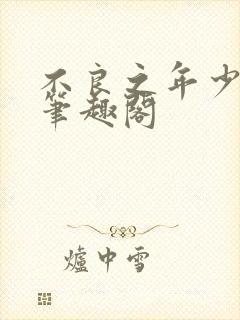 不良之年少
筆趣閣
爐中雪